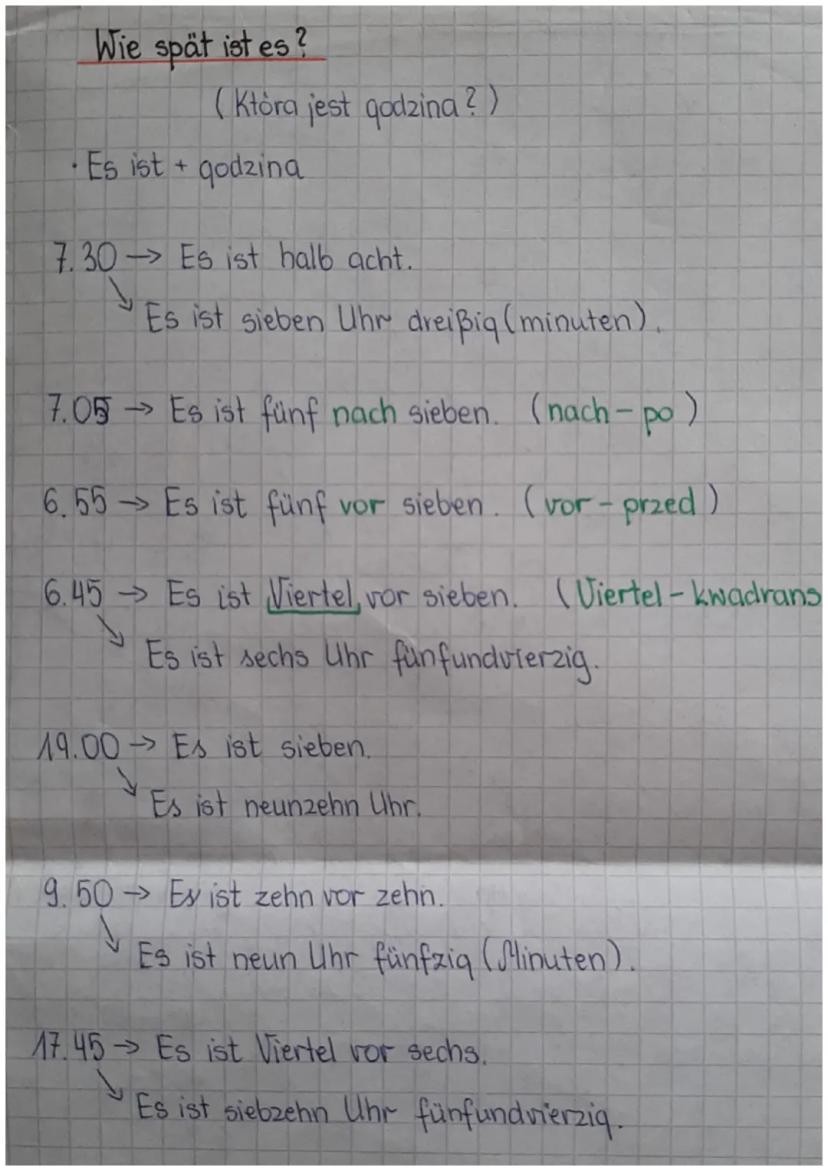 Wie spät ist es?
(Która jest godzina?)
· Es ist + godzina
7.30 → Es ist halb acht.
↘ Es ist sieben Uhr dreißig (minuten).
7.05 → Es ist fünf nach sieben. (nach - po)
6.55 → Es ist fünf vor sieben. (vor - przed)
6.45 → Es ist Viertel vor sieben. (Viertel - kwadrans
↘ Es ist sechs Uhr fünfundvierzig.
19.00 → Es ist sieben.
↘ Es ist neunzehn Uhr.
9.50 → Es ist zehn vor zehn.
↘ Es ist neun Uhr fünfzig (Minuten).
17.45 → Es ist Viertel vor sechs.
↘ Es ist siebzehn Uhr fünfundvierzig.